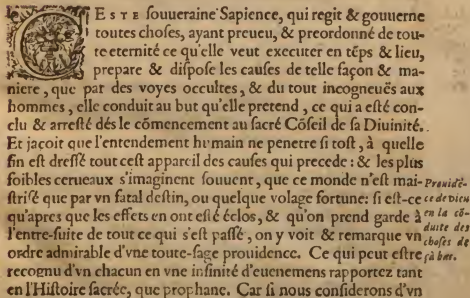 CESTE souueraine Sapience, qui regit & gouuerne
toutes choses, ayant preueu, & preordonné de tou-
te eternité ce qu'elle veut executer en tēps & lieu,
prepare & dispose les causes de telle façon & ma-
niere, que par des voyes occultes, & du tout incogneuës aux
hommes, elle conduit au but qu'elle pretend, ce qui a esté con-
clu & arresté dés le cōmencement au sacré Cōseil de sa Diuinité.
Et jacoit que l'entendement humain ne penetre si tost, à quelle
fin est dressé tout cest appareil des causes qui precede: & les plus
foibles cerueaux s'imaginent souuent, que ce monde n'est mai-
strisé que par vn fatal destin, ou quelque volage fortune: si est-ce
qu'apres que les effets en ont esté éclos, & qu'on prend garde à
l'entre-suite de tout ce qui s'est passé, on y voit & remarque vn
ordre admirable d'vne toute-sage prouidence. Ce qui peut estre
recognu d'vn chacun en vne infinité d'euenemens rapportez tant
en l'Histoire sacrée, que prophane. Car si nous considerons d'vn
Prouidē-
ce de Dieu
en la cō-
duite des
choses de
çà bas.